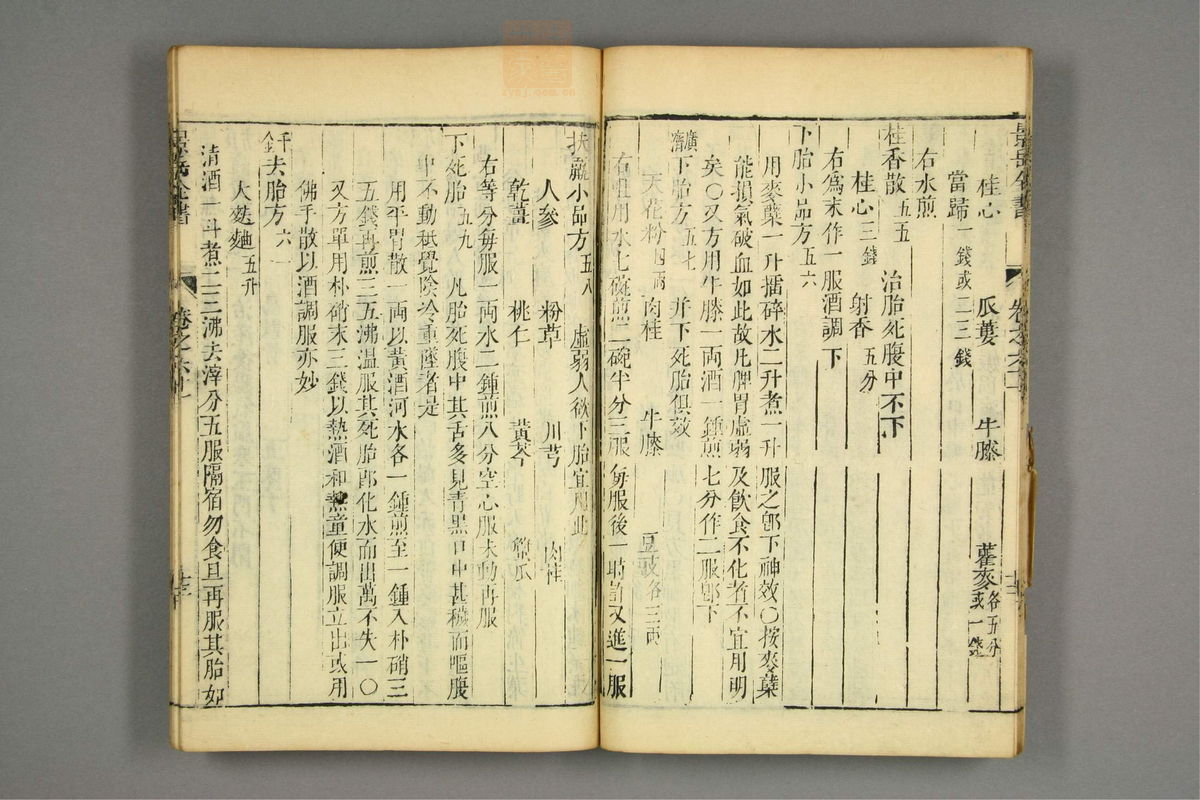 景岳全書 卷之六十一
桂心 瓜蔞 牛膝 藋麥各五分或一錢
當歸一錢或二三錢
右水煎
桂香散五五 治胎死腹中不下
桂心三錢 射香五分
右爲末作一服酒調下
下胎小品方五六
用麥蘗一升擂碎水二升煮一升服之卽下神效○按麥蘗
能損氣破血如此故凡脾胃虛弱及飲食不化者不宜用明
矣○又方用牛膝一両酒一鍾煎七分作二服卽下
廣濟下胎方五七 并下死胎俱效
天花粉四両 肉桂 牛膝 豆豉各三両
右㕮咀用水七碗煎二碗半分三服每服後一時許又進一服
扶羸小品方五八 虛弱人欲下胎宜用此
人參 粉草 川芎 肉桂
乾薑 桃仁 黃芩 蟹爪
右等分每服一両水二鍾煎八分空心服未動再服
下死胎五九 凡胎死腹中其舌多見青黑口中甚穢而嘔腹
中不動秪覺陰冷重墜者是
用平胃散一両以黃酒河水各一鍾煎至一鍾入朴硝三
五錢再煎三五沸溫服其死胎卽化水而出萬不失一○
又方單用朴硝末三錢以熱酒和熱童便調服立出或用
佛手散以酒調服亦妙
千金去胎方六一
大麩麯五升
清酒一斗煮二三沸去滓分五服隔宿勿食旦再服其胎如
景岳全書 卷之六十一